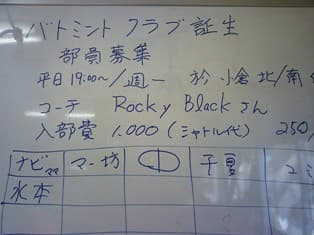 バトミント クラブ 証生
部員募集
平日 19:00〜/週一 於 小倉 北/南
コーチ Rocky Blackさん
入部費 1.000(シャトル代) 250/
ナビママ マー坊 千夏
水本